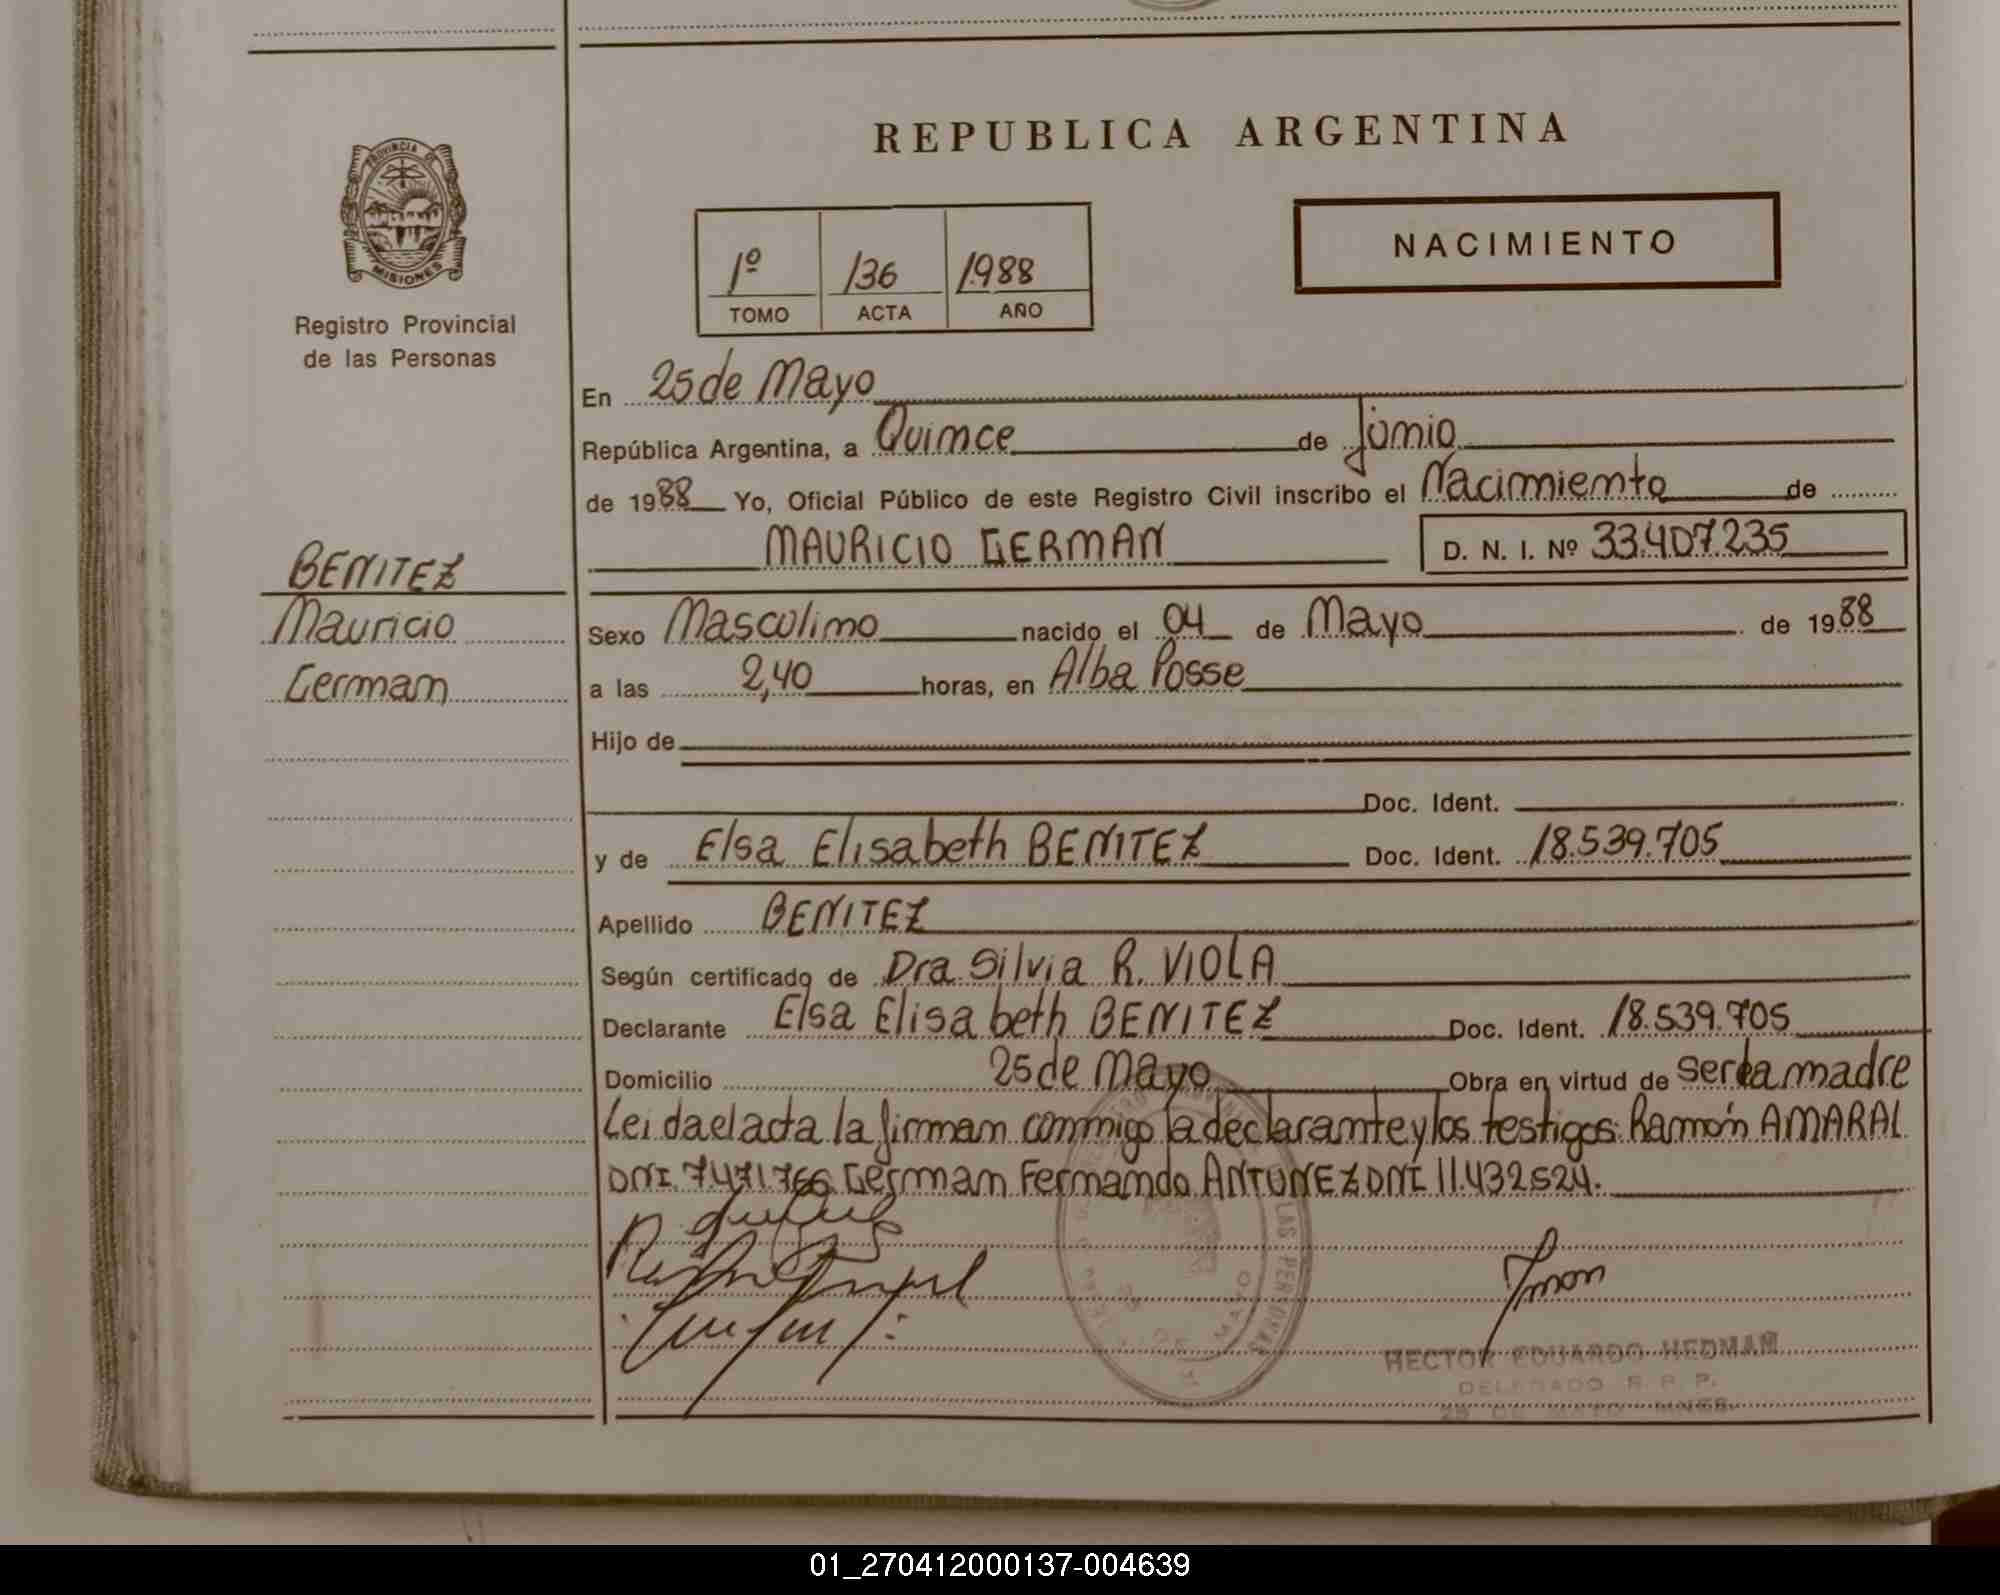 REPUBLICA ARGENTINA
PROVINCIA DE
MISIONES
Registro Provincial
de las Personas
1º 136 1988
TOMO ACTA AÑO
NACIMIENTO
En 25 de Mayo
República Argentina, a Quince de junio
de 1988 Yo, Oficial Público de este Registro Civil inscribo el Nacimiento de
MAURICIO GERMAN D. N. I. Nº 33.407.235
BENITEZ
Mauricio
German
Sexo Masculino nacido el 04 de Mayo de 1988
a las 2,40 horas, en Alba Posse
Hijo de
Doc. Ident.
y de Elsa Elisabeth BENITEZ Doc. Ident. 18.539.705
Apellido BENITEZ
Según certificado de Dra. Silvia R. VIOLA
Declarante Elsa Elisabeth BENITEZ Doc. Ident. 18.539.705
Domicilio 25 de Mayo Obra en virtud de ser la madre
Leida el acta la firman conmigo la declarante y los testigos: Ramón AMARAL
DNI. 7471.766 German Fernando ANTUNEZ DNI 11.432524.
LAS PERSONAS
25 DE MAYO
HECTOR EDUARDO HEDMAN
DELEGADO R. P. P.
25 DE MAYO - MNES.
01_270412000137-004639